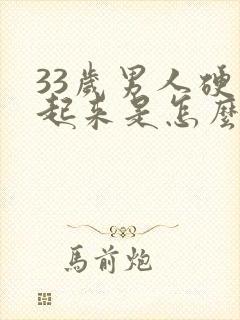 33歲男人硬
起來是怎麼
馬前炮